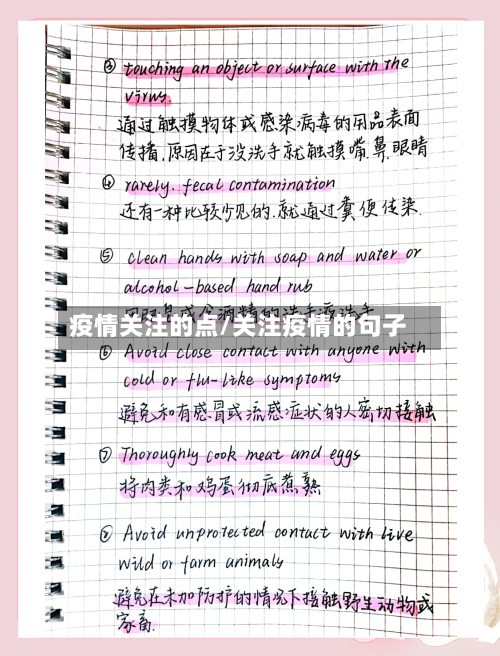 ③ touching an object or surface with the
virus.
通过触摸物体或感染病毒的用品表面
传播,原因在于没洗手就触摸嘴.鼻.眼睛
④ rarely. fecal contamination
还有一种比较少见的.就通过粪便传染.
⑤ clean hands with soap and water or
alcohol-based hand rub
疫情关注的点/关注疫情的句子
⑥ Avoid close contact with anyone with
cold or flu-like symptoms
避免和有感冒或流感症状的人密切接触
⑦ Thoroughly cook meat and eggs
将肉类和鸡蛋彻底煮熟
⑧ Avoid unprotected contact with live
wild or farm animals
避免在未加防护的情况下接触野生动物或
家畜.